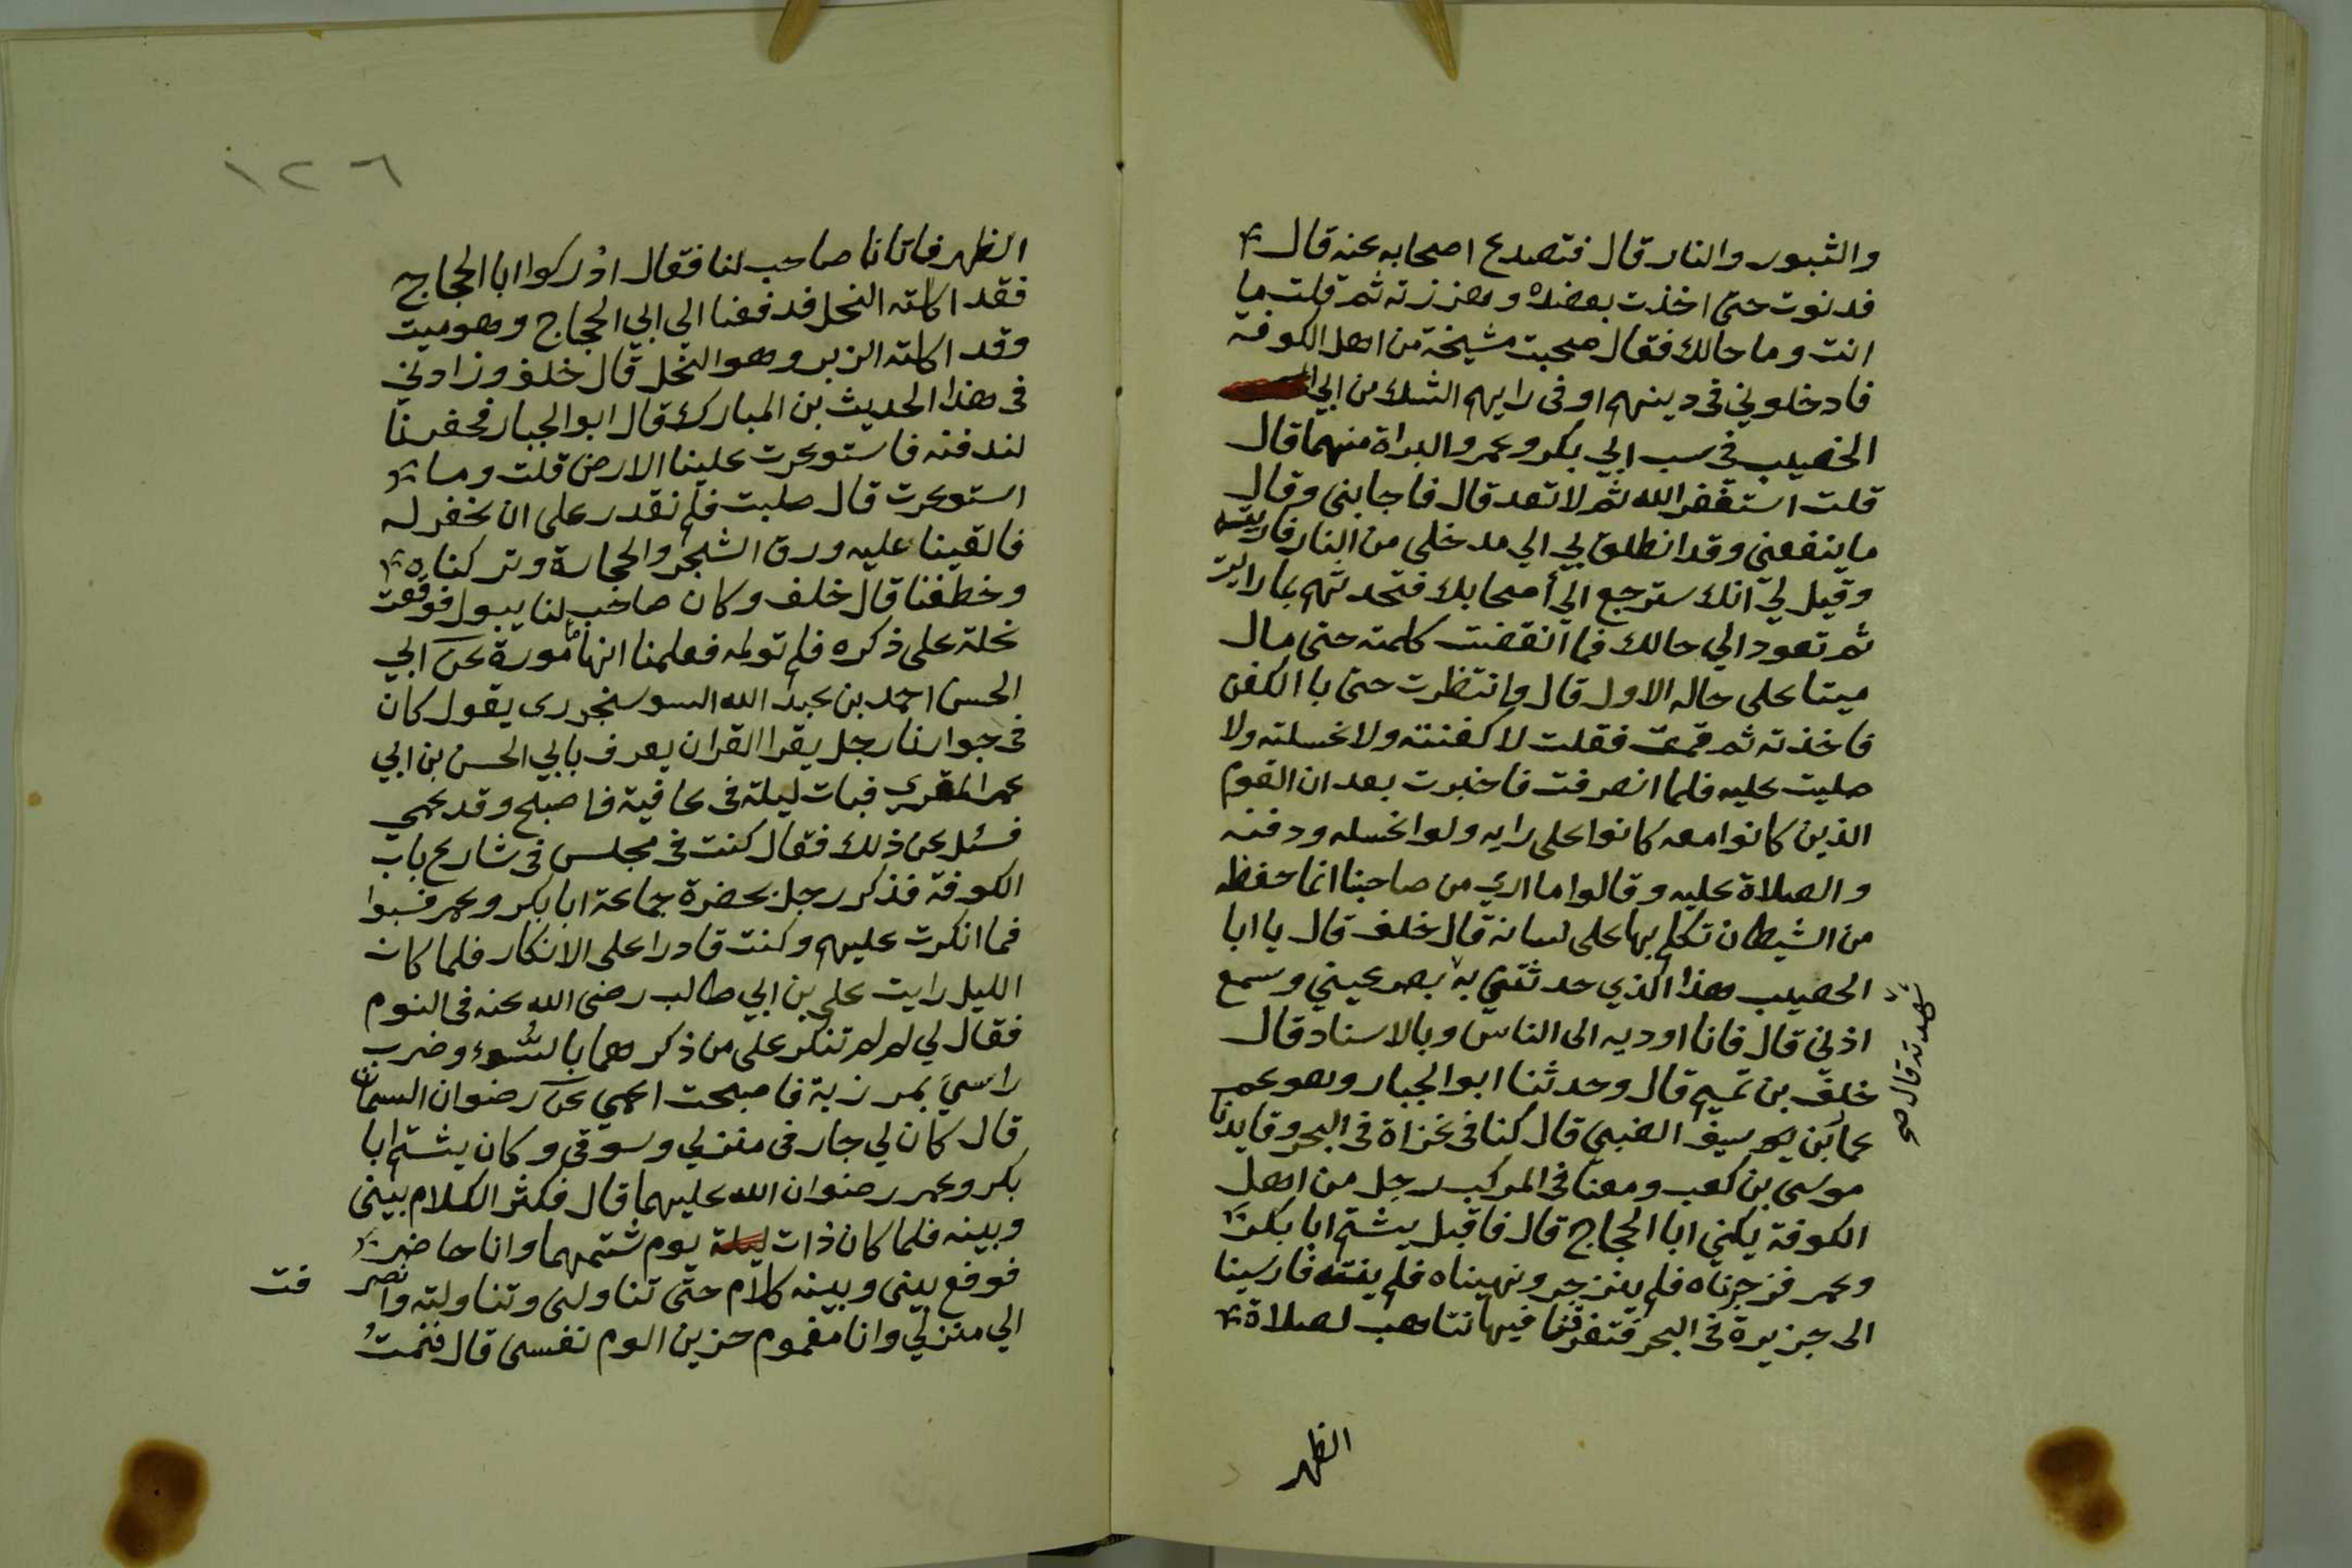 والثبور والنار قال فتصدع اصحابه عنه قال
فدنوت حتى اخذت بعضده وهززته ثم قلت ما
انت وما حالك فقال صحبت مشيخة من اهل الكوفة
فادخلوني في دينهم او في رايهم الشك من ابي
الخصيب في سب ابي بكر وعمر والبراة منهما قال
قلت استغفر الله ثم لا تعد قال فاجابني وقال
ما ينفعني وقد انطلق بي الي مدخلي من النار فاريته
وقيل لي انك سترجع الي أصحابك فتحدثهم بما رايت
ثم تعود الي حالك فما انقضت كلمته حتى مال
ميتا على حاله الاول قال وانتظرت حتى باالكفن
فاخذته ثم قمت فقلت لا كفنته ولا غسلته ولا
صليت عليه فلما انصرفت فاخبرت بعد ان القوم
الذين كانوا معه كانوا على رايه ولوا غسله ودفنه
والصلاة عليه وقالوا ما اري من صاحبنا انما حفظه
من الشيطان تكلم بها على لسانه قال خلف قال يا ابا
الخصيب هذا الذي حدثتني به بصر عيني وسمع
شهدته قال صح
اذني قال فانا اوديه الى الناس وبالاسناد قال
خلف بن تميم قال وحدثنا ابو الجبار وهو عم
عمار بن سيف الضبي قال كنا في غزاة في البحر وقايدنا
موسى بن كعب ومعنا في المركب رجل من اهل
الكوفة يكني ابا الحجاج قال فاقبل يشتم ابا بكر
وعمر فزجرناه فلم ينزجر ونهيناه فلم ينته فارسينا
الى جزيرة في البحر فتفرقنا فيها نتاهب لصلاة
الظهر
١٢٦
الظهر فاتانا صاحب لنا فقال ادركوا ابا الحجاج
فقد اكلته النحل فدفعنا الي ابي الحجاج وهو ميت
وقد اكلته الزبر وهو النحل قال خلف وزادني
في هذا الحديث بن المبارك قال ابو الجبار فحفرنا
لندفنه فاستوعرت علينا الارض قلت وما
استوعرت قال صلبت فلم نقدر على ان نحفر له
فالقينا عليه ورق الشجر والحجارة وتركناه
وخطفنا قال خلف وكان صاحب لنا يبول فوقعت
نحلة على ذكره فلم تولمه فعلمنا انها مأمورة عن ابي
الحسن احمد بن عبد الله السوسنجردى يقول كان
في جوارنا رجل يقرا القران يعرف بابي الحسن بن ابي
عمر المقرى فبات ليلة في عافية فاصبح وقد عمي
فسئل عن ذلك فقال كنت في مجلس في شارع باب
الكوفة فذكر رجل بحضرة جماعة ابا بكر وعمر فسبوا
فما انكرت عليهم وكنت قادرا على الانكار فلما كان
الليل رايت علي بن ابي طالب رضى الله عنه في النوم
فقال لي لم لم تنكر على من ذكر هما بالسُّوء وضرب
راسي بمرزبة فاصبحت اعمي عن رضوان السمان
قال كان لي جار في منزلي وسوقي وكان يشتم ابا
بكر وعمر رضوان الله عليهما قال فكثر الكلام بيني
وبينه فلما كان ذات ليلة يوم شتمهما وانا حاضر
فوقع بيني وبينه كلام حتى تناولني وتناولته وانصر فت
الي منزلي وانا مغموم حزين الوم نفسى قال فنمتُ